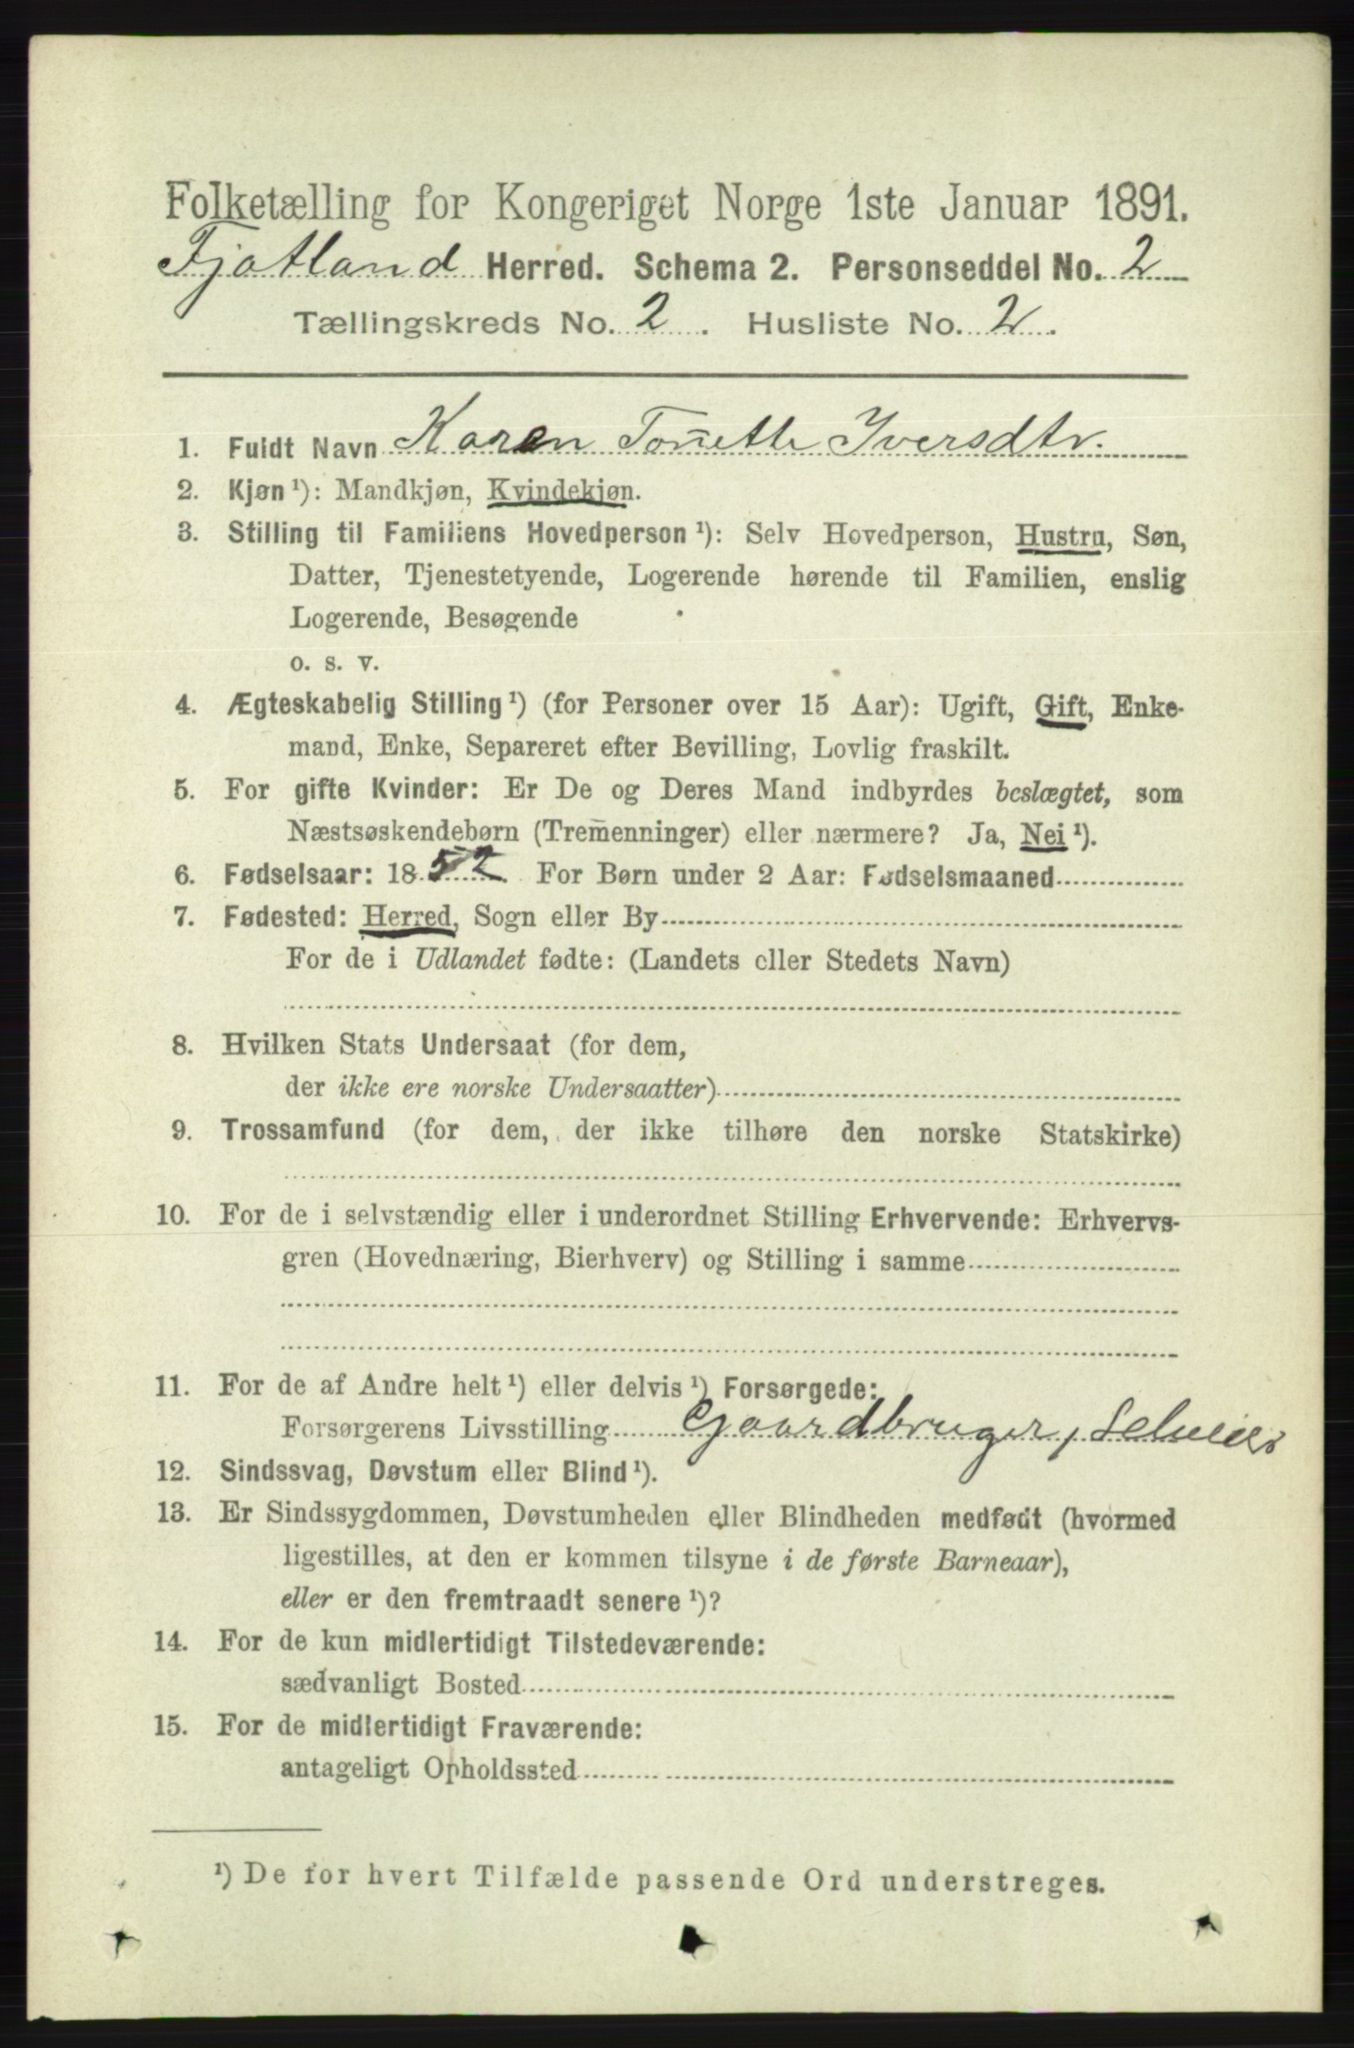 Folketælling for Kongeriget Norge 1ste Januar 1891.
Fjotland Herred. Schema 2. Personseddel No. 2
Tællingskreds No. 2. Husliste No. 2.
1. Fuldt Navn Karen Tonette Iversdtr.
2. Kjøn ¹): Mandkjøn, Kvindekjøn.
3. Stilling til Familiens Hovedperson ¹): Selv Hovedperson, Hustru, Søn,
Datter, Tjenestetyende, Logerende hørende til Familien, enslig
Logerende, Besøgende
o. s. v.
4. Ægteskabelig Stilling ¹) (for Personer over 15 Aar): Ugift, Gift, Enke-
mand, Enke, Separeret efter Bevilling, Lovlig fraskilt.
5. For gifte Kvinder: Er De og Deres Mand indbyrdes beslægtet, som
Næstsøskendebørn (Tremenninger) eller nærmere? Ja, Nei ¹).
6. Fødselsaar: 1852 For Børn under 2 Aar: Fødselsmaaned
7. Fødested: Herred, Sogn eller By
For de i Udlandet fødte: (Landets eller Stedets Navn)
8. Hvilken Stats Undersaat (for dem,
der ikke ere norske Undersaatter)
9. Trossamfund (for dem, der ikke tilhøre den norske Statskirke)
10. For de i selvstændig eller i underordnet Stilling Erhvervende: Erhvervs-
gren (Hovednæring, Bierhverv) og Stilling i samme
11. For de af Andre helt ¹) eller delvis ¹) Forsørgede:
Forsørgerens Livsstilling Gaardbruger, Selveier
12. Sindssvag, Døvstum eller Blind ¹).
13. Er Sindssygdommen, Døvstumheden eller Blindheden medfødt (hvormed
ligestilles, at den er kommen tilsyne i de første Barneaar),
eller er den fremtraadt senere ¹)?
14. For de kun midlertidigt Tilstedeværende:
sædvanligt Bosted
15. For de midlertidigt Fraværende:
antageligt Opholdssted
¹) De for hvert Tilfælde passende Ord understreges.